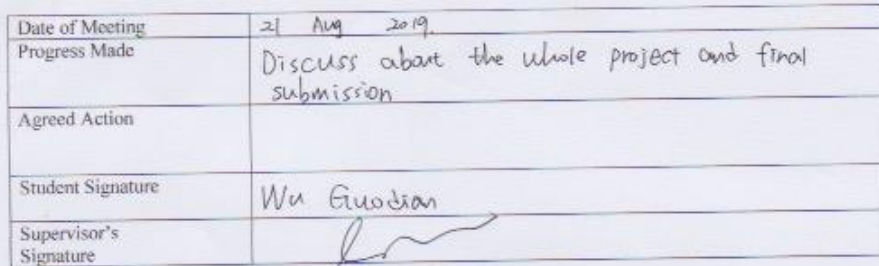 Date of Meeting 21 Aug 2019.
Progress Made Discuss about the whole project and final
submission
Agreed Action
Student Signature Wu Guodian
Supervisor's
Signature